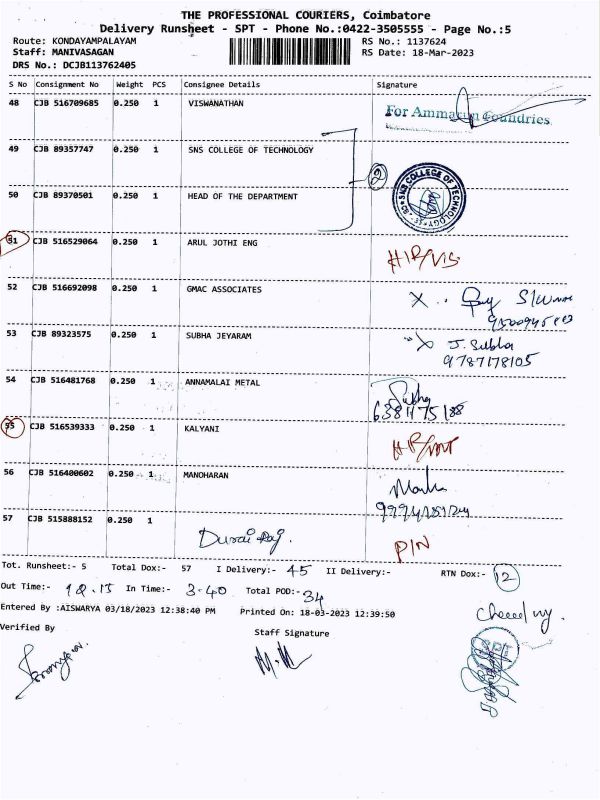 THE PROFESSIONAL COURIERS, Coimbatore
Delivery Runsheet - SPT - Phone No.:0422-3505555 - Page No.:5
Route: KONDAYAMPALAYAM RS No.: 1137624
Staff: MANIVASAGAN RS Date: 18-Mar-2023
DRS No.: DCJB113762405
S No Consignment No Weight PCS Consignee Details Signature
48 CJB 516709685 0.250 1 VISWANATHAN
For Ammarun Foundries
49 CJB 89357747 0.250 1 SNS COLLEGE OF TECHNOLOGY
2
SNS COLLEGE OF TECHNOLOGY
50 CJB 89370501 0.250 1 HEAD OF THE DEPARTMENT
51 CJB 516529064 0.250 1 ARUL JOTHI ENG
52 CJB 516692098 0.250 1 GMAC ASSOCIATES
53 CJB 89323575 0.250 1 SUBHA JEYARAM J. Subha
9787178105
54 CJB 516481768 0.250 1 ANNAMALAI METAL
55 CJB 516539333 0.250 1 KALYANI
56 CJB 516400602 0.250 1 MANOHARAN
57 CJB 515888152 0.250 1
Durai Raj. P/N
Tot. Runsheet:- 5 Total Dox:- 57 I Delivery:- 45 II Delivery:- RTN Dox:- 12
Out Time:- 12.15 In Time:- 3.40 Total POD:- 34
Entered By :AISWARYA 03/18/2023 12:38:40 PM Printed On: 18-03-2023 12:39:50
Verified By Staff Signature
SPT